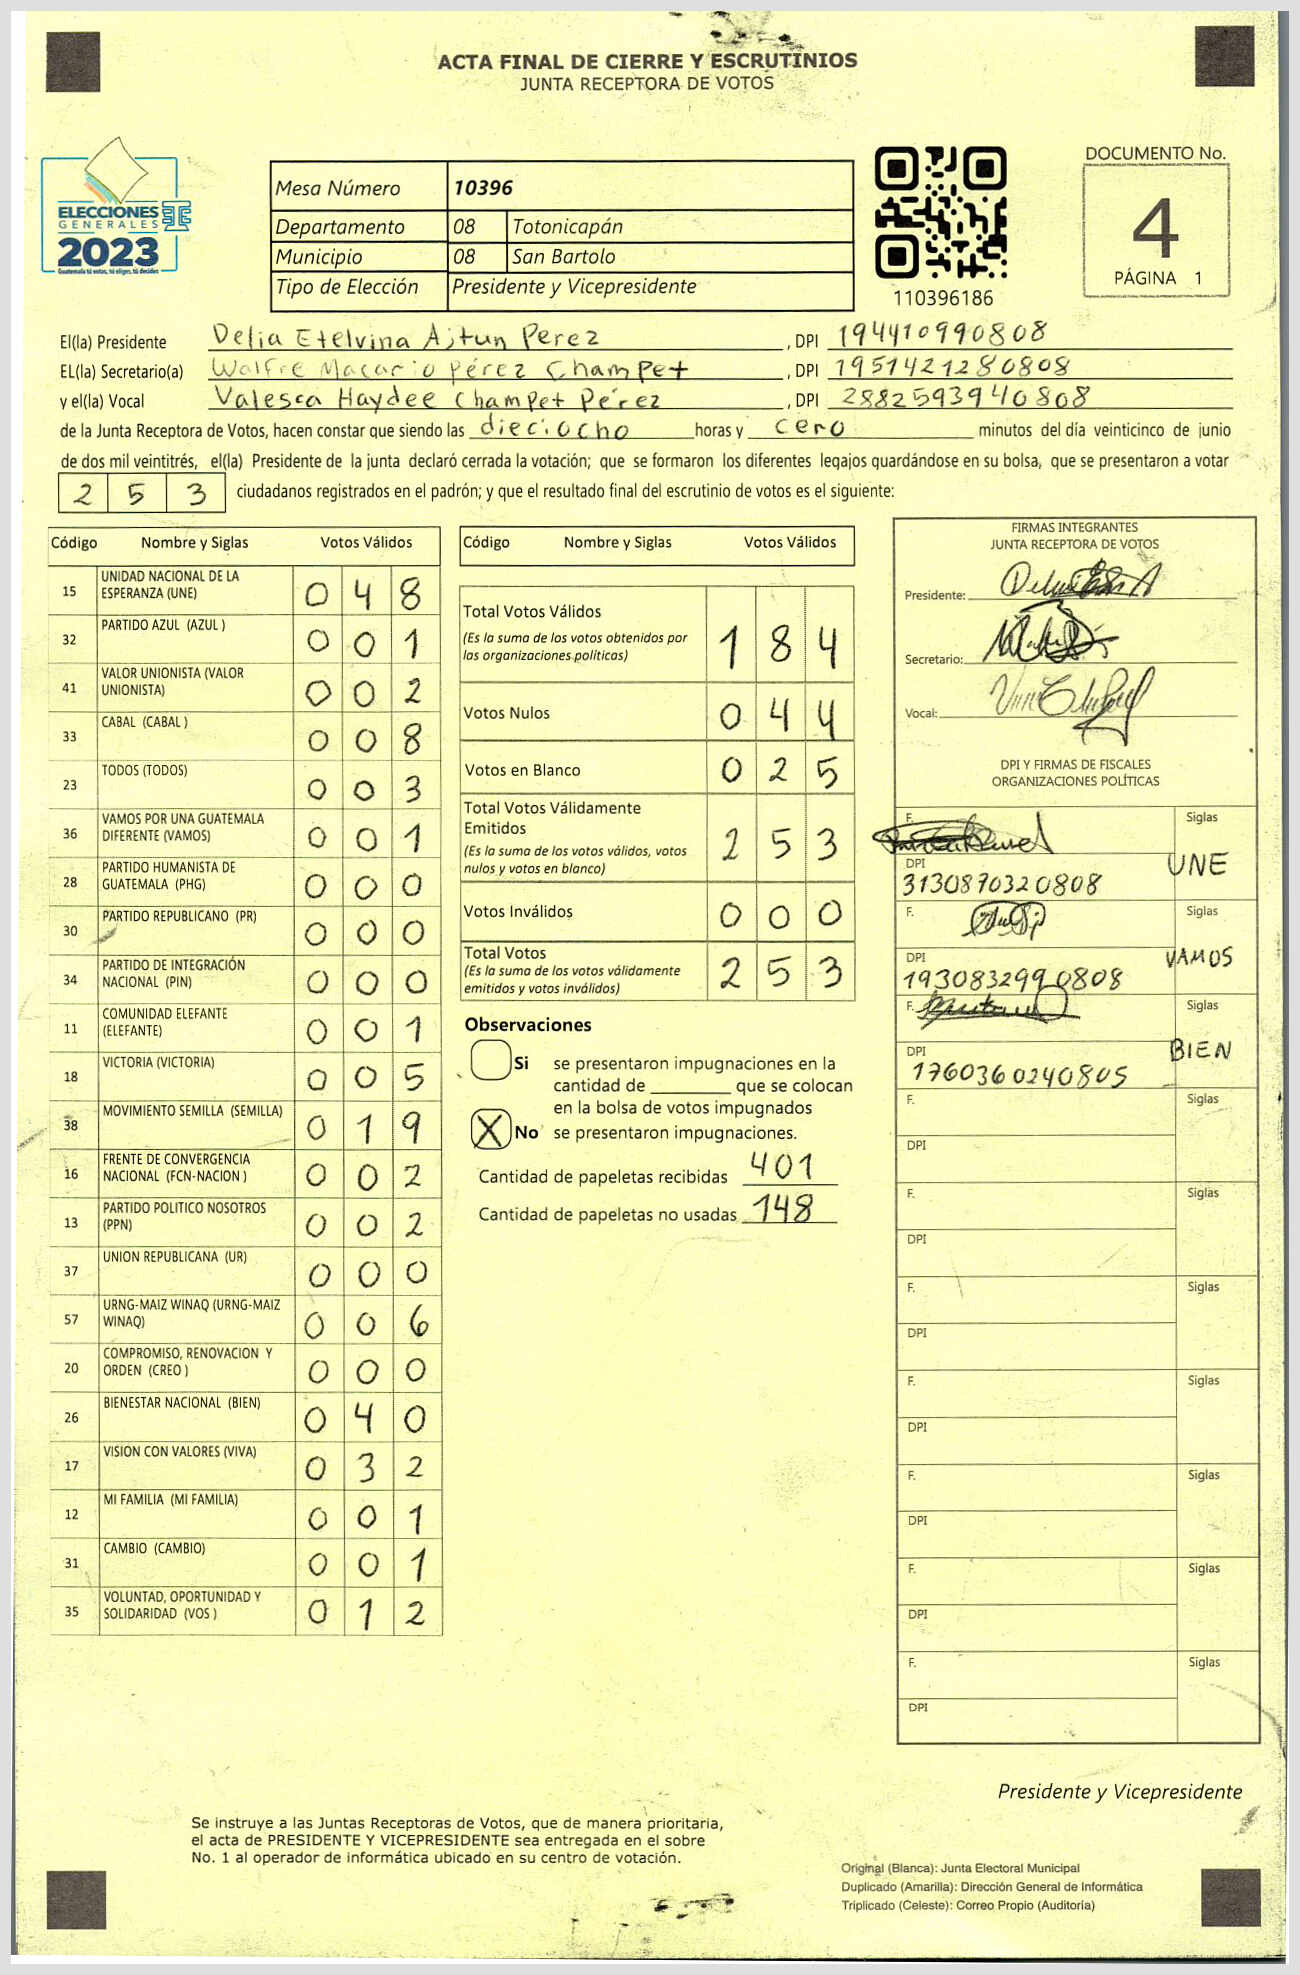 ACTA FINAL DE CIERRE Y ESCRUTINIOS
JUNTA RECEPTORA DE VOTOS
ELECCIONES
GENERALES
2023
Guatemala tú votas, tú eliges, tú decides
Mesa Número 10396
Departamento 08 Totonicapán
Municipio 08 San Bartolo
Tipo de Elección Presidente y Vicepresidente
110396186
DOCUMENTO No.
4
PÁGINA 1
El(la) Presidente Delia Etelvina Ajtun Perez, DPI 194410990808
EL(la) Secretario(a) Walfre Macario Pérez Champet, DPI 1951421280808
y el(la) Vocal Valesca Haydee Champet Pérez, DPI 2882593940808
de la Junta Receptora de Votos, hacen constar que siendo las dieciocho horas y cero minutos del día veinticinco de junio
de dos mil veintitrés, el(la) Presidente de la junta declaró cerrada la votación; que se formaron los diferentes legajos guardándose en su bolsa, que se presentaron a votar
2 5 3 ciudadanos registrados en el padrón; y que el resultado final del escrutinio de votos es el siguiente:
Código Nombre y Siglas Votos Válidos
15 UNIDAD NACIONAL DE LA ESPERANZA (UNE) 0 4 8
32 PARTIDO AZUL (AZUL ) 0 0 1
41 VALOR UNIONISTA (VALOR UNIONISTA) 0 0 2
33 CABAL (CABAL ) 0 0 8
23 TODOS (TODOS) 0 0 3
36 VAMOS POR UNA GUATEMALA DIFERENTE (VAMOS) 0 0 1
28 PARTIDO HUMANISTA DE GUATEMALA (PHG) 0 0 0
30 PARTIDO REPUBLICANO (PR) 0 0 0
34 PARTIDO DE INTEGRACIÓN NACIONAL (PIN) 0 0 0
11 COMUNIDAD ELEFANTE (ELEFANTE) 0 0 1
18 VICTORIA (VICTORIA) 0 0 5
38 MOVIMIENTO SEMILLA (SEMILLA) 0 1 9
16 FRENTE DE CONVERGENCIA NACIONAL (FCN-NACION ) 0 0 2
13 PARTIDO POLITICO NOSOTROS (PPN) 0 0 2
37 UNION REPUBLICANA (UR) 0 0 0
57 URNG-MAIZ WINAQ (URNG-MAIZ WINAQ) 0 0 6
20 COMPROMISO, RENOVACION Y ORDEN (CREO ) 0 0 0
26 BIENESTAR NACIONAL (BIEN) 0 4 0
17 VISION CON VALORES (VIVA) 0 3 2
12 MI FAMILIA (MI FAMILIA) 0 0 1
31 CAMBIO (CAMBIO) 0 0 1
35 VOLUNTAD, OPORTUNIDAD Y SOLIDARIDAD (VOS ) 0 1 2
Código Nombre y Siglas Votos Válidos
Total Votos Válidos 1 8 4
(Es la suma de los votos obtenidos por
las organizaciones políticas)
Votos Nulos 0 4 4
Votos en Blanco 0 2 5
Total Votos Válidamente
Emitidos 2 5 3
(Es la suma de los votos válidos, votos
nulos y votos en blanco)
Votos Inválidos 0 0 0
Total Votos 2 5 3
(Es la suma de los votos válidamente
emitidos y votos inválidos)
Observaciones
Si se presentaron impugnaciones en la
cantidad de ________ que se colocan
en la bolsa de votos impugnados
X No se presentaron impugnaciones.
Cantidad de papeletas recibidas 401
Cantidad de papeletas no usadas 148
FIRMAS INTEGRANTES
JUNTA RECEPTORA DE VOTOS
Presidente:
Secretario:
Vocal:
DPI Y FIRMAS DE FISCALES
ORGANIZACIONES POLÍTICAS
F. Siglas
DPI UNE
3130870320808
F. Siglas
DPI VAMOS
1930832990808
F. Siglas
DPI BIEN
1760360240805
F. Siglas
DPI
F. Siglas
DPI
F. Siglas
DPI
F. Siglas
DPI
F. Siglas
DPI
F. Siglas
DPI
F. Siglas
DPI
Presidente y Vicepresidente
Se instruye a las Juntas Receptoras de Votos, que de manera prioritaria,
el acta de PRESIDENTE Y VICEPRESIDENTE sea entregada en el sobre
No. 1 al operador de informática ubicado en su centro de votación.
Original (Blanca): Junta Electoral Municipal
Duplicado (Amarilla): Dirección General de Informática
Triplicado (Celeste): Correo Propio (Auditoría)